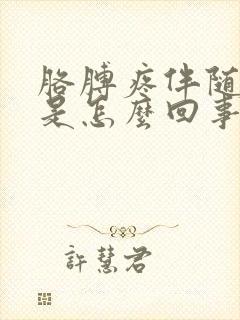 胳膊疼伴随
是怎麽回事
許慧君